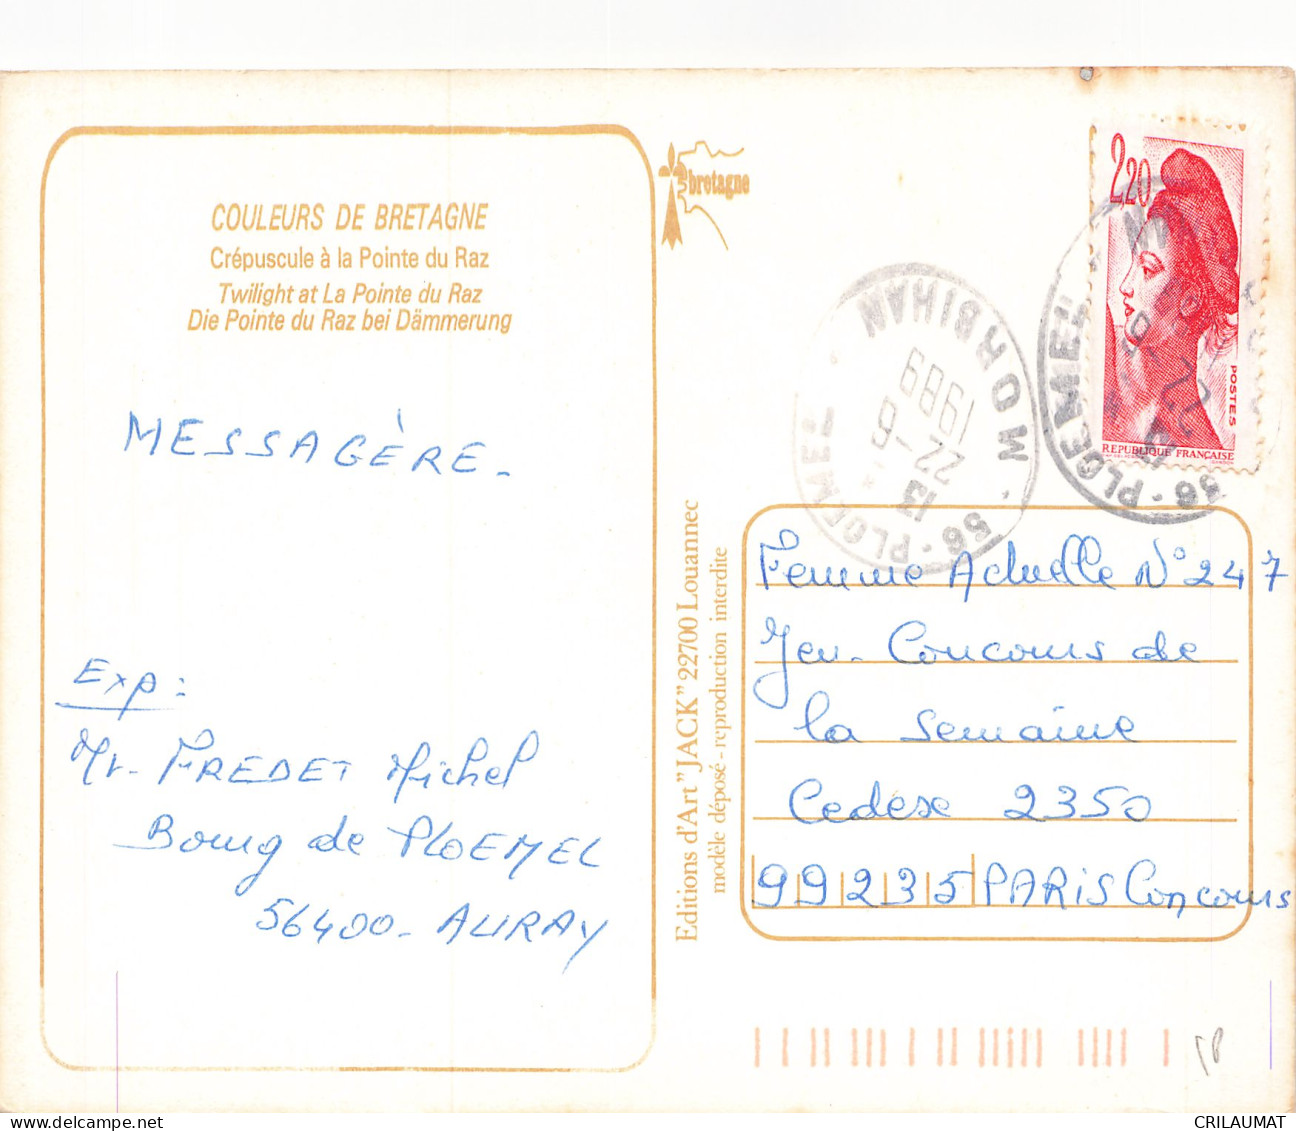 COULEURS DE BRETAGNE
Crépuscule à la Pointe du Raz
Twilight at La Pointe du Raz
Die Pointe du Raz bei Dämmerung
MESSAGÈRE.
Exp:
Mr. FREDET Michel
Bourg de PLOEMEL
56400 - AURAY
bretagne
Editions d'Art "JACK" 22700 Louannec
modèle déposé - reproduction interdite
2,20
POSTES
REPUBLIQUE FRANÇAISE
56 - PLOEMEL - MORBIHAN
13
22-6
1989
56 - PLOEMEL
Femme Actuelle N° 247
Jeu - Concours de
la semaine
Cedex 2350
99235 PARIS Concours
CRILAUMAT